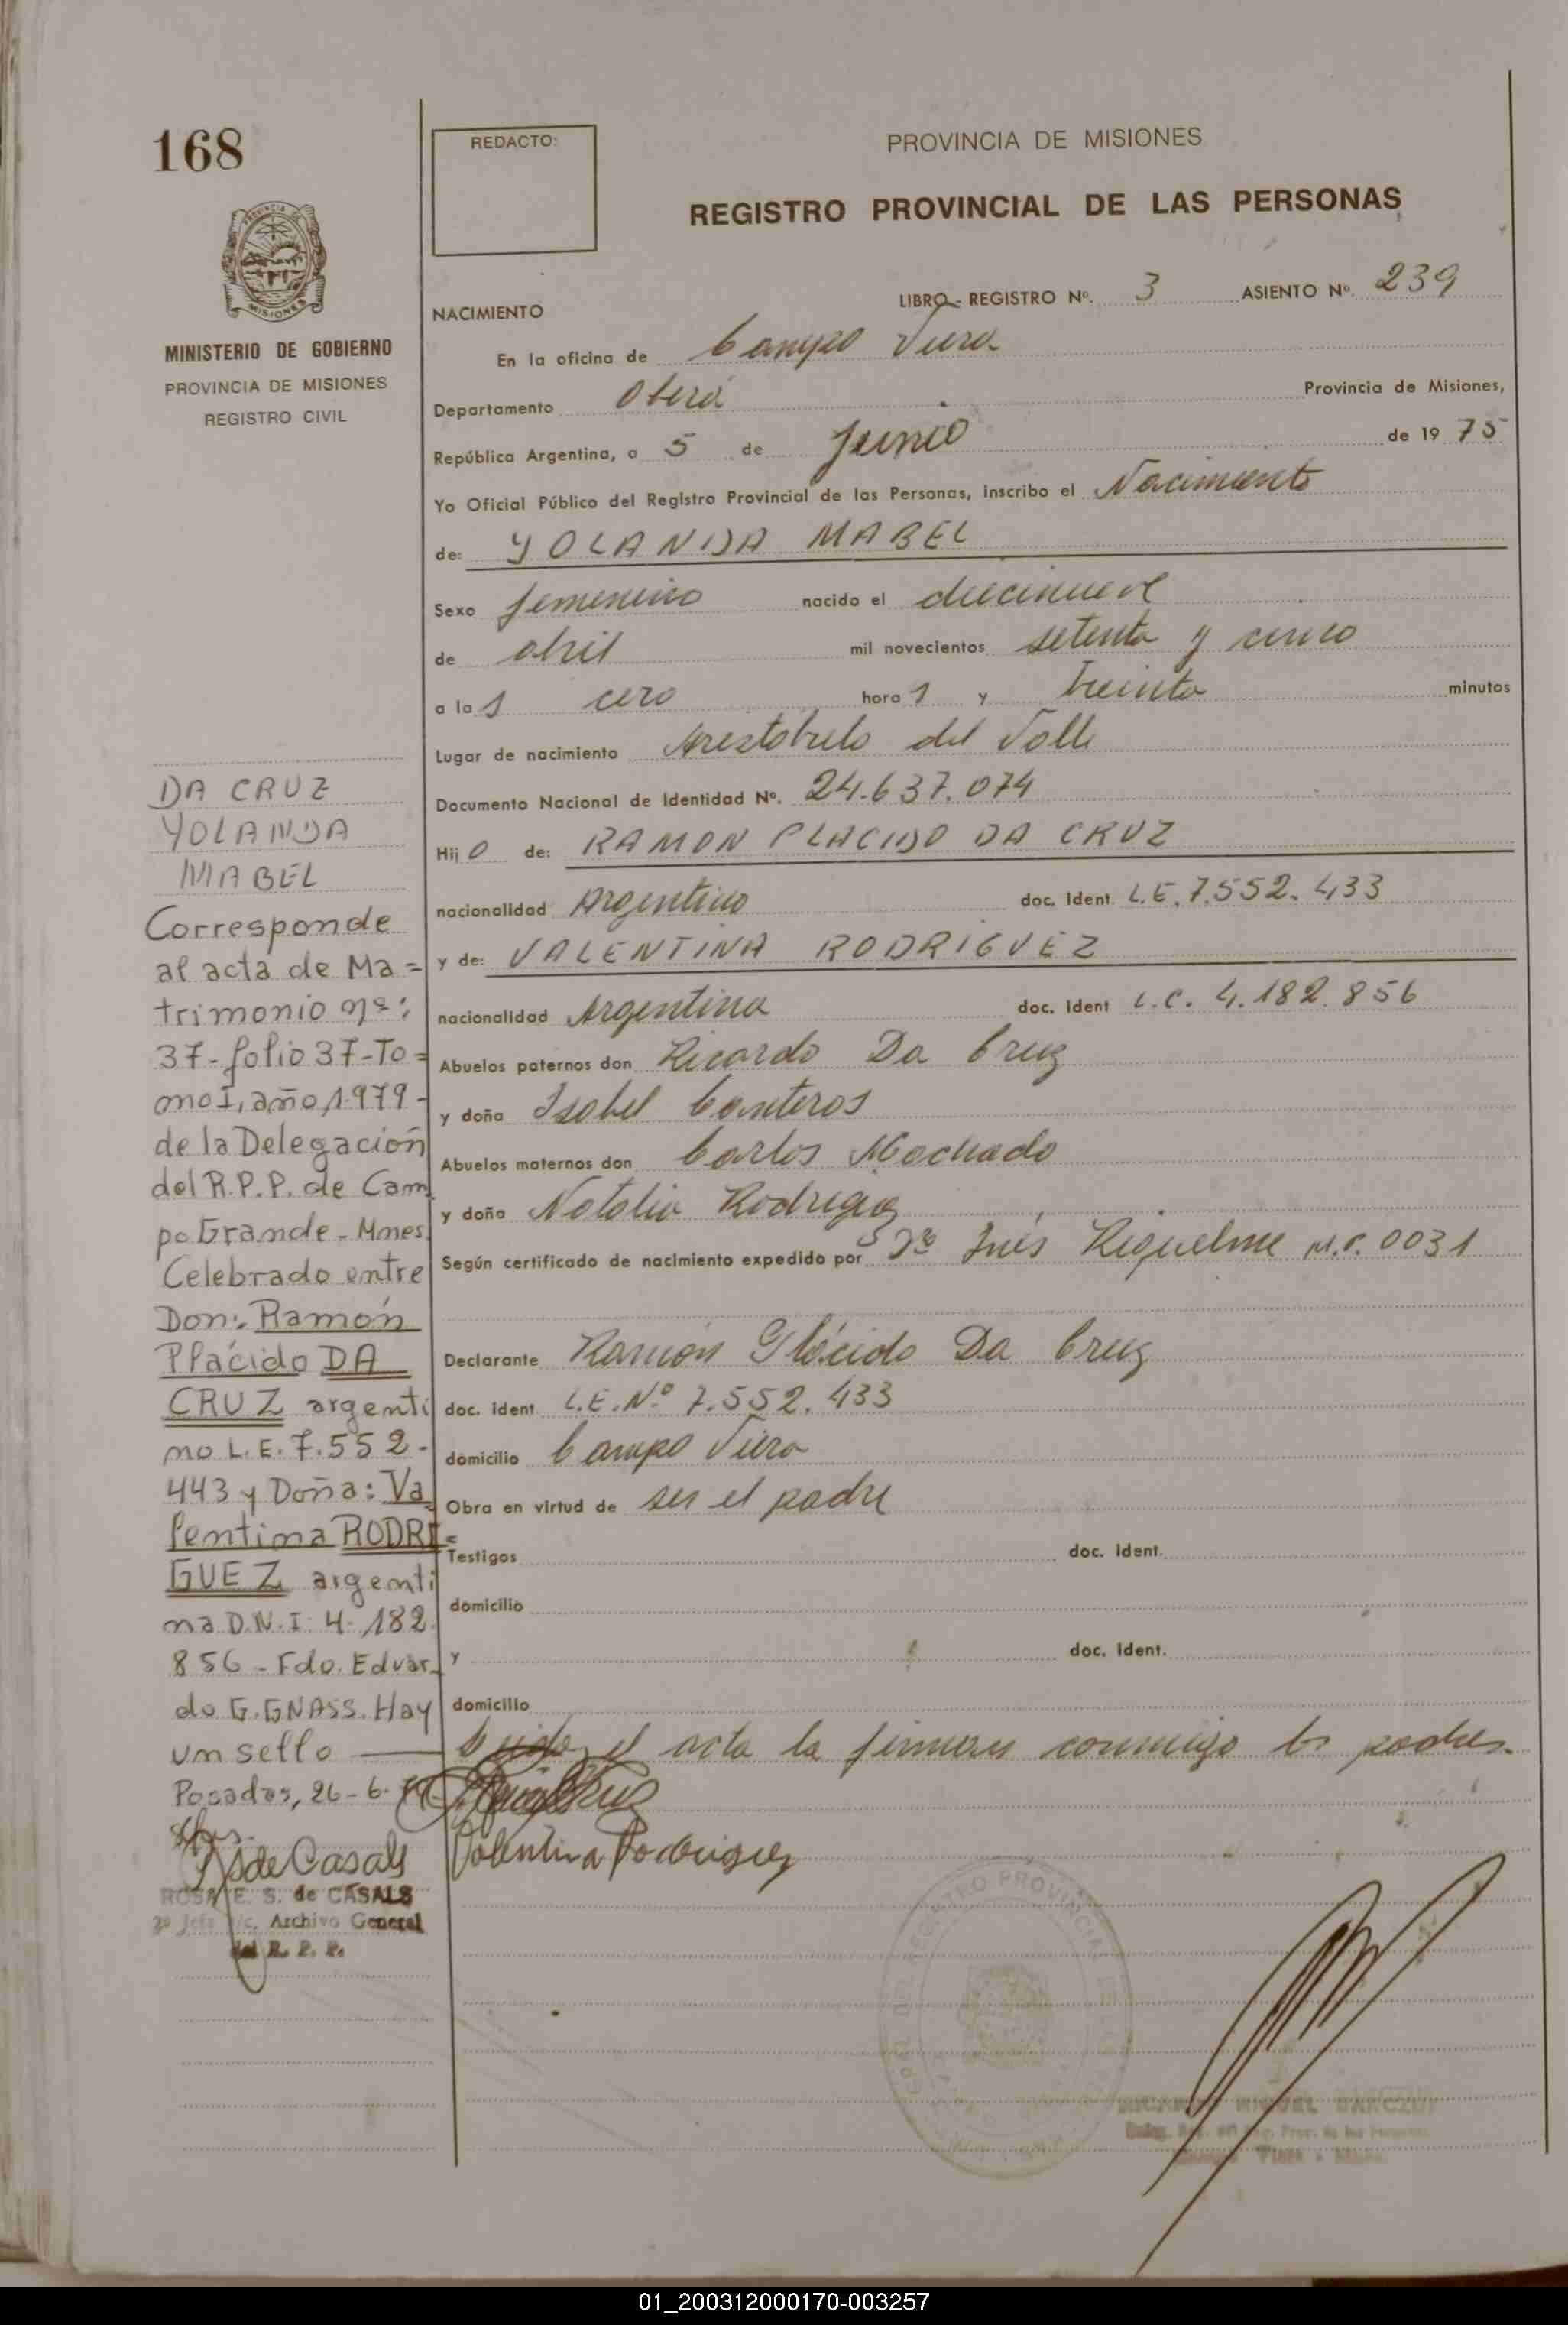 168
REDACTO:
PROVINCIA DE MISIONES
REGISTRO PROVINCIAL DE LAS PERSONAS
MINISTERIO DE GOBIERNO
PROVINCIA DE MISIONES
REGISTRO CIVIL
NACIMIENTO
LIBRO - REGISTRO Nº. 3 ASIENTO Nº. 239
En la oficina de Campo Viera
Departamento Oberá Provincia de Misiones,
República Argentina, a 5 de Junio de 1975
Yo Oficial Público del Registro Provincial de las Personas, inscribo el Nacimiento
de: YOLANDA MABEL
Sexo femenino nacido el diecinueve
de abril mil novecientos setenta y cinco
a la s cero hora s y treinta minutos
Lugar de nacimiento Aristobulo del Valle
Documento Nacional de Identidad Nº. 24.637.074
Hij o de: RAMON PLACIDO DA CRUZ
nacionalidad Argentino doc. ident L.E. 7.552.433
y de: VALENTINA RODRIGUEZ
nacionalidad Argentina doc. ident L.C. 4.182.856
Abuelos paternos don Ricardo Da Cruz
y doña Isabel Canteros
Abuelos maternos don Carlos Machado
y doña Natalia Rodriguez
Según certificado de nacimiento expedido por Inés Riquelme M.P. 0031
Declarante Ramón Plácido Da Cruz
doc. ident L.E. Nº 7.552.433
domicilio Campo Viera
Obra en virtud de ser el padre
Testigos doc. ident.
domicilio
y doc. ident.
domicilio
Leida el acta la firman conmigo los padres.
Valentina Rodriguez
DA CRUZ
YOLANDA
MABEL
Corresponde
al acta de Ma=
trimonio nº:
37-folio 37-To=
mo I, año 1979-
de la Delegación
del R.P.P. de Cam
po Grande - Mnes.
Celebrado entre
Don: Ramón
Plácido DA
CRUZ argenti
no L.E. 7.552-
443 y Doña: Va
lentina RODRI=
GUEZ argenti
na D.N.I. 4.182.
856 - Fdo. Eduar-
do G. GNASS. Hay
un sello
Posadas, 26-6-
S de Casals
ROSA E. S. de CASALS
2º Jefe Archivo General
del R. P. P.
REGISTRO PROVINCIAL DE
01_200312000170-003257